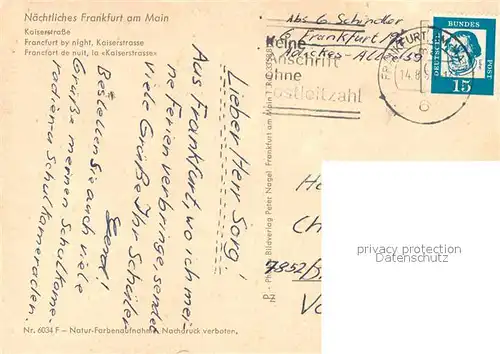 Nächtliches Frankfurt am Main
Kaiserstraße
Francfurt by night, Kaiserstrasse
Francfort de nuit, la «Kaiserstrasse»
Lieber Herr Sorg!
Aus Frankfurt, wo ich mei-
ne Ferien verbringe, sendet
viele Grüße Ihr Schüler
Gerd!
Bestellen Sie auch viele
Grüße meinen Schulkame-
radinen u. Schulkameraden.
Nr. 6034 F – Natur-Farbenaufnahme. Nachdruck verboten.
Bildverlag Peter Nagel Frankfurt am Main
Abs G. Schindler
6 Frankfurt
Allee 59
Keine
Anschrift
ohne
Postleitzahl
FRANKFURT
14.8
DEUTSCHE
BUNDES
POST
15
Ha
Ch
7852/
Vo
privacy protection